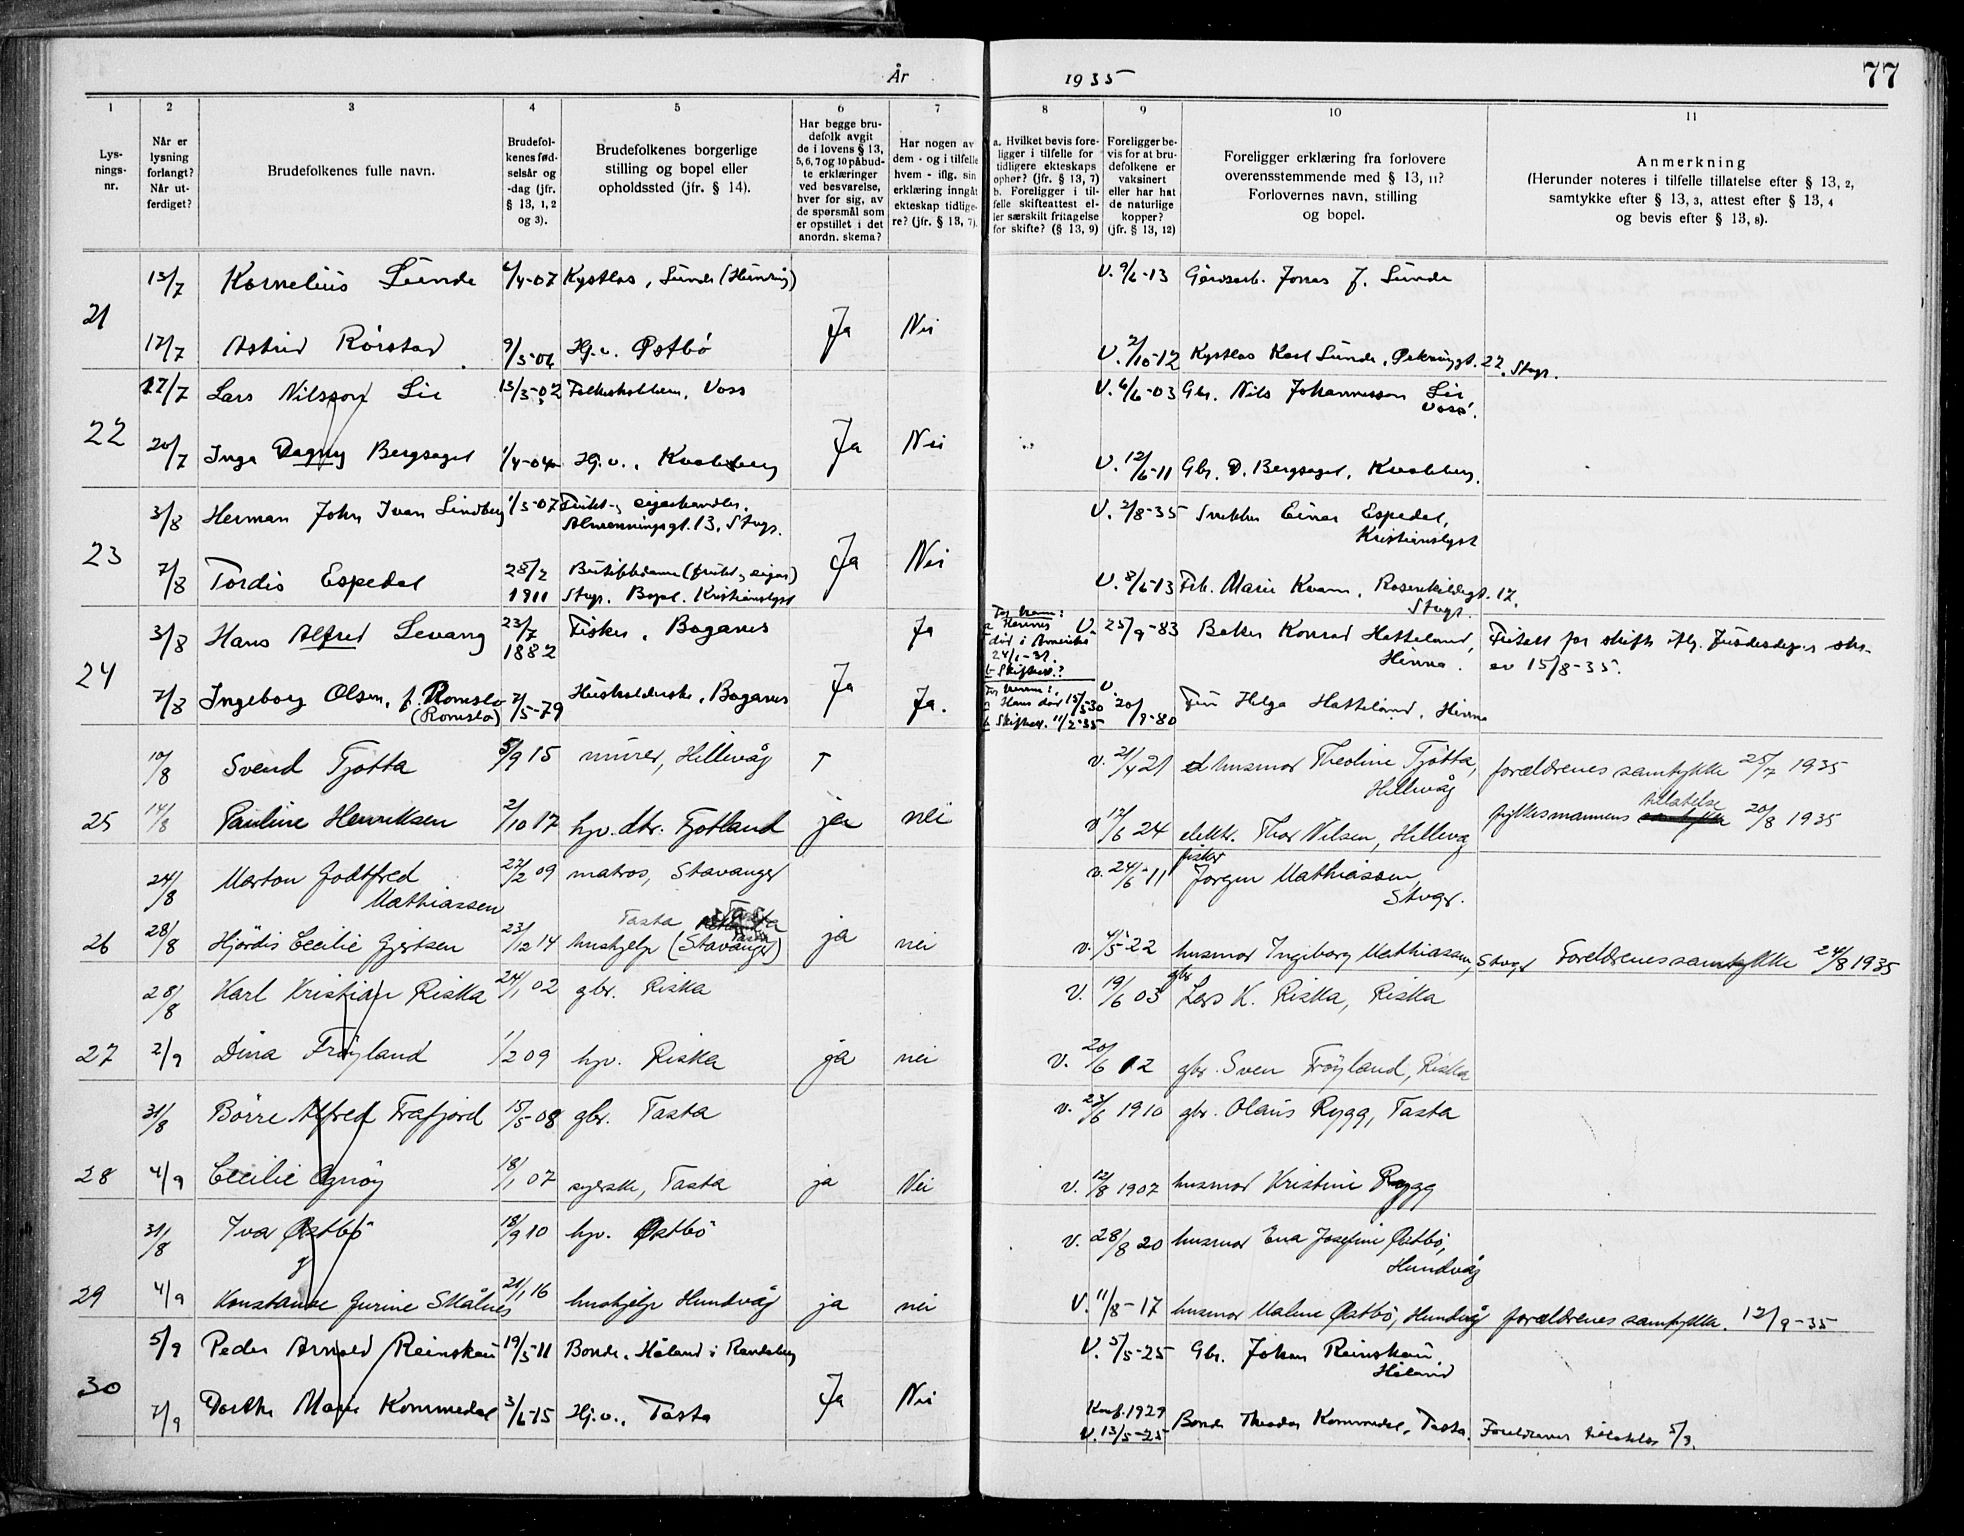 År 1935
77
1
2
3
4
5
6
7
8
9
10
11
Lys-
nings-
nr.
Når er
lysning
forlangt?
Når ut-
ferdiget?
Brudefolkenes fulle navn.
Brudefol-
kenes fød-
selsår og
-dag (jfr.
§ 13, 1, 2
og 3).
Brudefolkenes borgerlige
stilling og bopel eller
opholdssted (jfr. § 14).
Har begge bru-
defolk avgit
de i lovens § 13,
5, 6, 7 og 10 påbud-
te erklæringer
ved besvarelse,
hver for sig, av
de spørsmål som
er opstillet i det
anordn. skema?
Har nogen av
dem - og i tilfelle
hvem - iflg. sin
erklæring inngått
ekteskap tidlige-
re? (jfr. § 13, 7).
a. Hvilket bevis fore-
ligger i tilfelle for
tidligere ekteskaps
ophør? (jfr. § 13, 7)
b. Foreligger i til-
felle skifteattest el-
ler særskilt fritagelse
for skifte? (§ 13, 9)
Foreligger be-
vis for at bru-
defolkene er
vaksinert
eller har hat
de naturlige
kopper?
(jfr. § 13, 12)
Foreligger erklæring fra forlovere
overensstemmende med § 13, 11?
Forlovernes navn, stilling
og bopel.
Anmerkning
(Herunder noteres i tilfelle tillatelse efter § 13, 2,
samtykke efter § 13, 3, attest efter § 13, 4
og bevis efter § 13, 8).
21
13/7 Kornelius Sunde 6/4-07 Kystlos, Sunde (Hundvåg) V. 9/6-13 Gårdsarb. Jonas J. Sunde
17/7 Astrid Rörstad 9/3-06 Hj.v. Østbö Ja Nei V. 2/10-12 Kystlos Karl Sunde, 22, Stvgr.
22
17/7 Lars Nilsson Lie 13/3-02 Folkeskolelærer, Voss V. 6/6-03 Gbr. Nils Johannesson Lie
Voss.
20/7 Inga Dagny Bergsagel 1/4-04 Hj.v., Kvaleberg Ja Nei V. 12/6-11 Gbr. D. Bergsagel, Kvaleberg.
23
3/8 Herman John Ivan Lindberg 1/3-07 Frukt- og sigarhandler,
Almenningsgt. 13, Stvgr. V. 2/8-35 Snekker Einar Espedal,
Kristianslyst
7/8 Tordis Espedal 28/2
1911 Butikkdame (frukt og sigar)
Stvgr. Bopel. Kristianslyst Ja Nei V. 8/6-13 Frk. Marie Kvam, Rosenkildegt. 17.
Stvgr.
24
3/8 Hans Alfred Levang 23/7
1882 Fisker, Boganes Ja For ham:
a Hennes
död i Amerika
24/1-31.
b Skifteat.? V. 25/9-83 Baker Konrad Hatteland,
Hinna. Fritatt for skifte iflg. Justisdep.s skr.
av 15/8-35.
7/8 Ingeborg Olsen, f. Romslo
(Romslo) 7/5-79 Husholderske, Boganes Ja Ja. For henne:
a Hans död 15/3-30
b Skifteat. 11/2-35 V. 20/9-80 Fru Helga Hatteland, Hinna
25
10/8 Svend Tjøtta 5/9 15 murer, Hillevåg v. 21/4 21 husmor Theoline Tjøtta,
Hillevåg forældrenes samtykke 25/7 1935
14/8 Pauline Henriksen 2/10 17 hpv. dtr. Tjotland ja nei v 17/6 24 elektr. Thor Nilsen, Hillevåg fylkesmannens tillatelse 20/8 1935
26
24/8 Marton Godtfred
Mathiassen 27/2 09 matros, Stavanger v. 24/6-11 fisker
Jørgen Mathiassen,
Stvgr.
28/8 Hjördis Cecilie Gjertsen 23/12 14 hushjelp Tasta (Stavanger) ja nei v. 4/5-22 husmor Ingeborg Mathiassen, Stvgr Foreldrenes samtykke 24/8 1935
27
28/8 Karl Kristian Riska 24/1 02 gbr. Riska V. 19/6 03 gbr
Lars K. Riska, Riska
2/9 Dina Fröyland 1/2 09 hpv. Riska ja nei v. 20/6 12 gbr. Sven Fröyland, Riska
28
31/8 Börre Alfred Frafjord 15/5-08 gbr. Tasta v. 23/6 1910 gbr. Olaus Rygg, Tasta
4/9 Cecilie Ognöy 18/1 07 syerske, Tasta ja Nei v. 12/8 1907 husmor Kristine Rygg
29
31/8 Ivar Østbö 18/9 10 hpv. Østbö v. 28/8 20 husmor Ena Josefine Østbö,
Hundvåg
4/9 Konstanse Gurine Skålnes 21/1 16 hushjelp Hundvåg ja nei V. 11/8-17 husmor Malene Østbö, Hundvåg forældrenes samtykke. 12/9-35
30
5/9 Peder Arnold Reinskau 19/3-11 Bonde, Håland i Randaberg V. 5/5-25 Gbr. Johan Reinskau
Håland
7/9 Dorthe Marie Kommedal 3/6-15 Hj.v., Tasta Ja Nei Konf. 1929
V. 13/5-25 Bonde Theodor Kommedal, Tasta. Foreldrenes tillatelse 5/9.